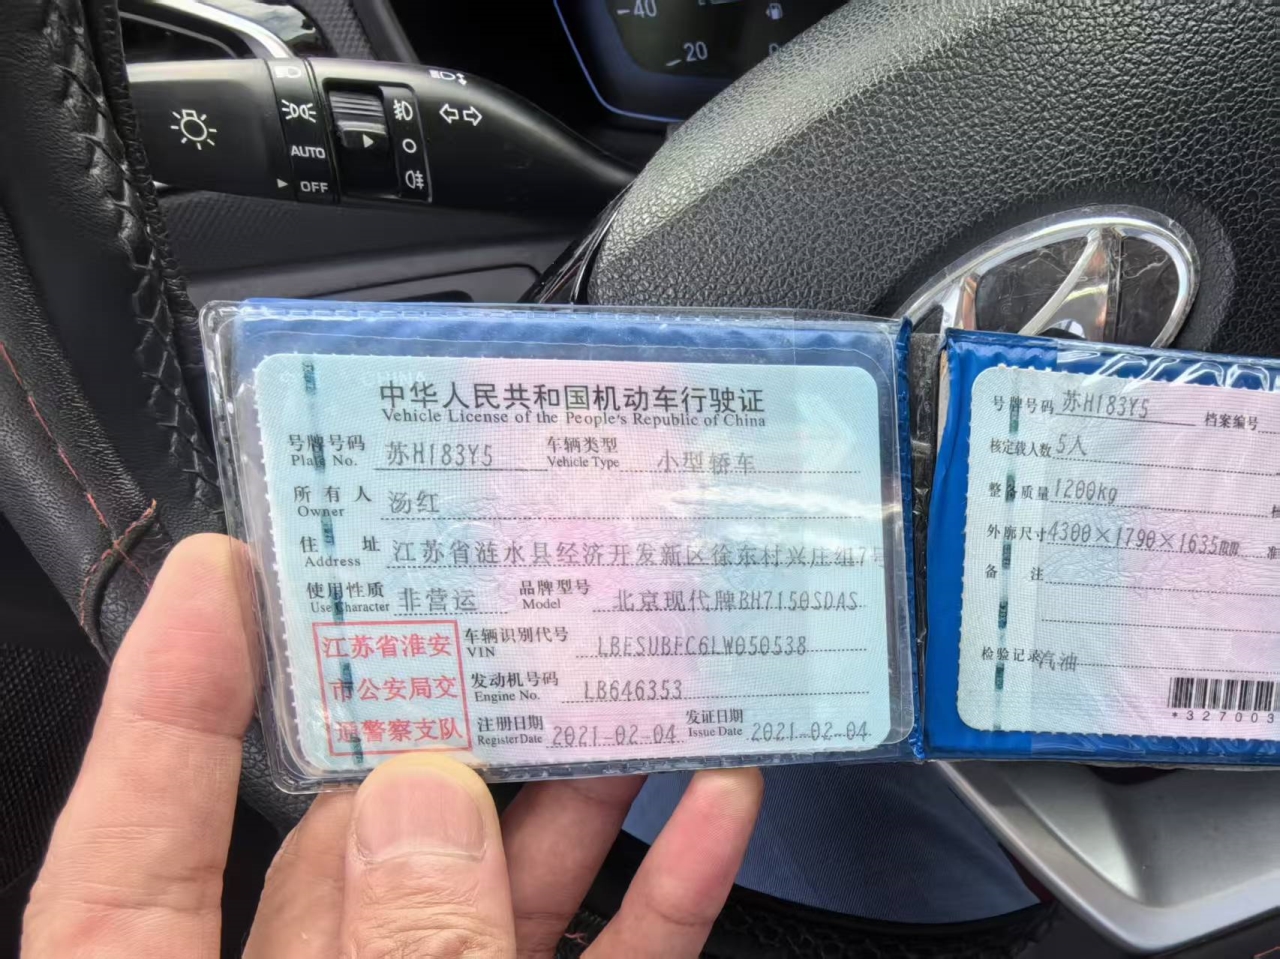 40
20
AUTO
OFF
中华人民共和国机动车行驶证
Vehicle License of the People's Republic of China
号牌号码 苏H183Y5 车辆类型 小型轿车
Plate No. Vehicle Type
所有人 汤红
Owner
住址 江苏省涟水县经济开发新区徐东村兴庄组7号
Address
使用性质 非营运 品牌型号 北京现代牌BH7150SDAS
Use Character Model
江苏省淮安
市公安局交
通警察支队
车辆识别代号 LBESUBFC6LW050538
VIN
发动机号码 LB646353
Engine No.
注册日期 2021-02-04 发证日期 2021-02-04
Register Date Issue Date
号牌号码 苏H183Y5 档案编号
核定载人数 5人
整备质量 1200kg
外廓尺寸 4300×1790×1635mm
备注
检验记录 汽油
*327003